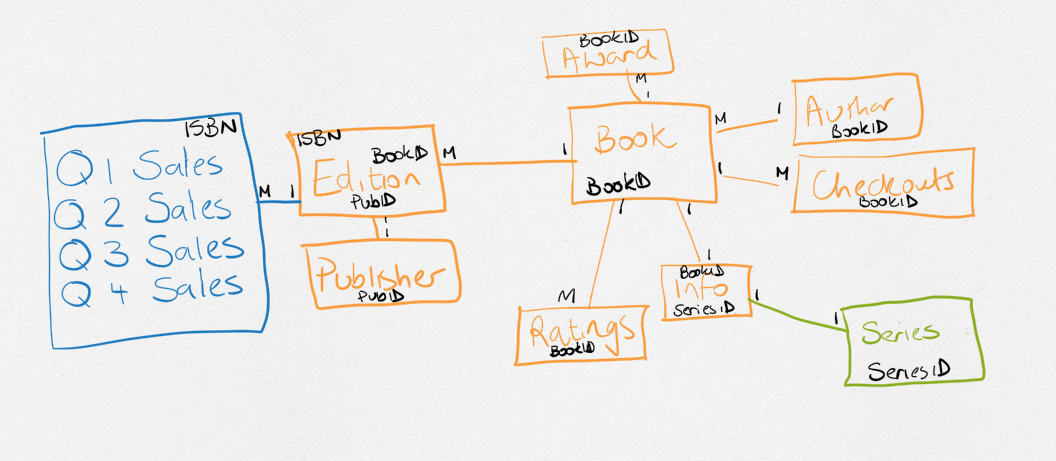 ISBN
Q1 Sales
Q2 Sales
Q3 Sales
Q4 Sales
M
1
ISBN
BookID
Edition
PubID
M
1
1
Publisher
PubID
BookID
Award
M
1
Book
BookID
M
1
Author
BookID
1
M
Checkouts
BookID
1
M
Ratings
BookID
1
1
BookID
Info
SeriesID
1
1
Series
SeriesID